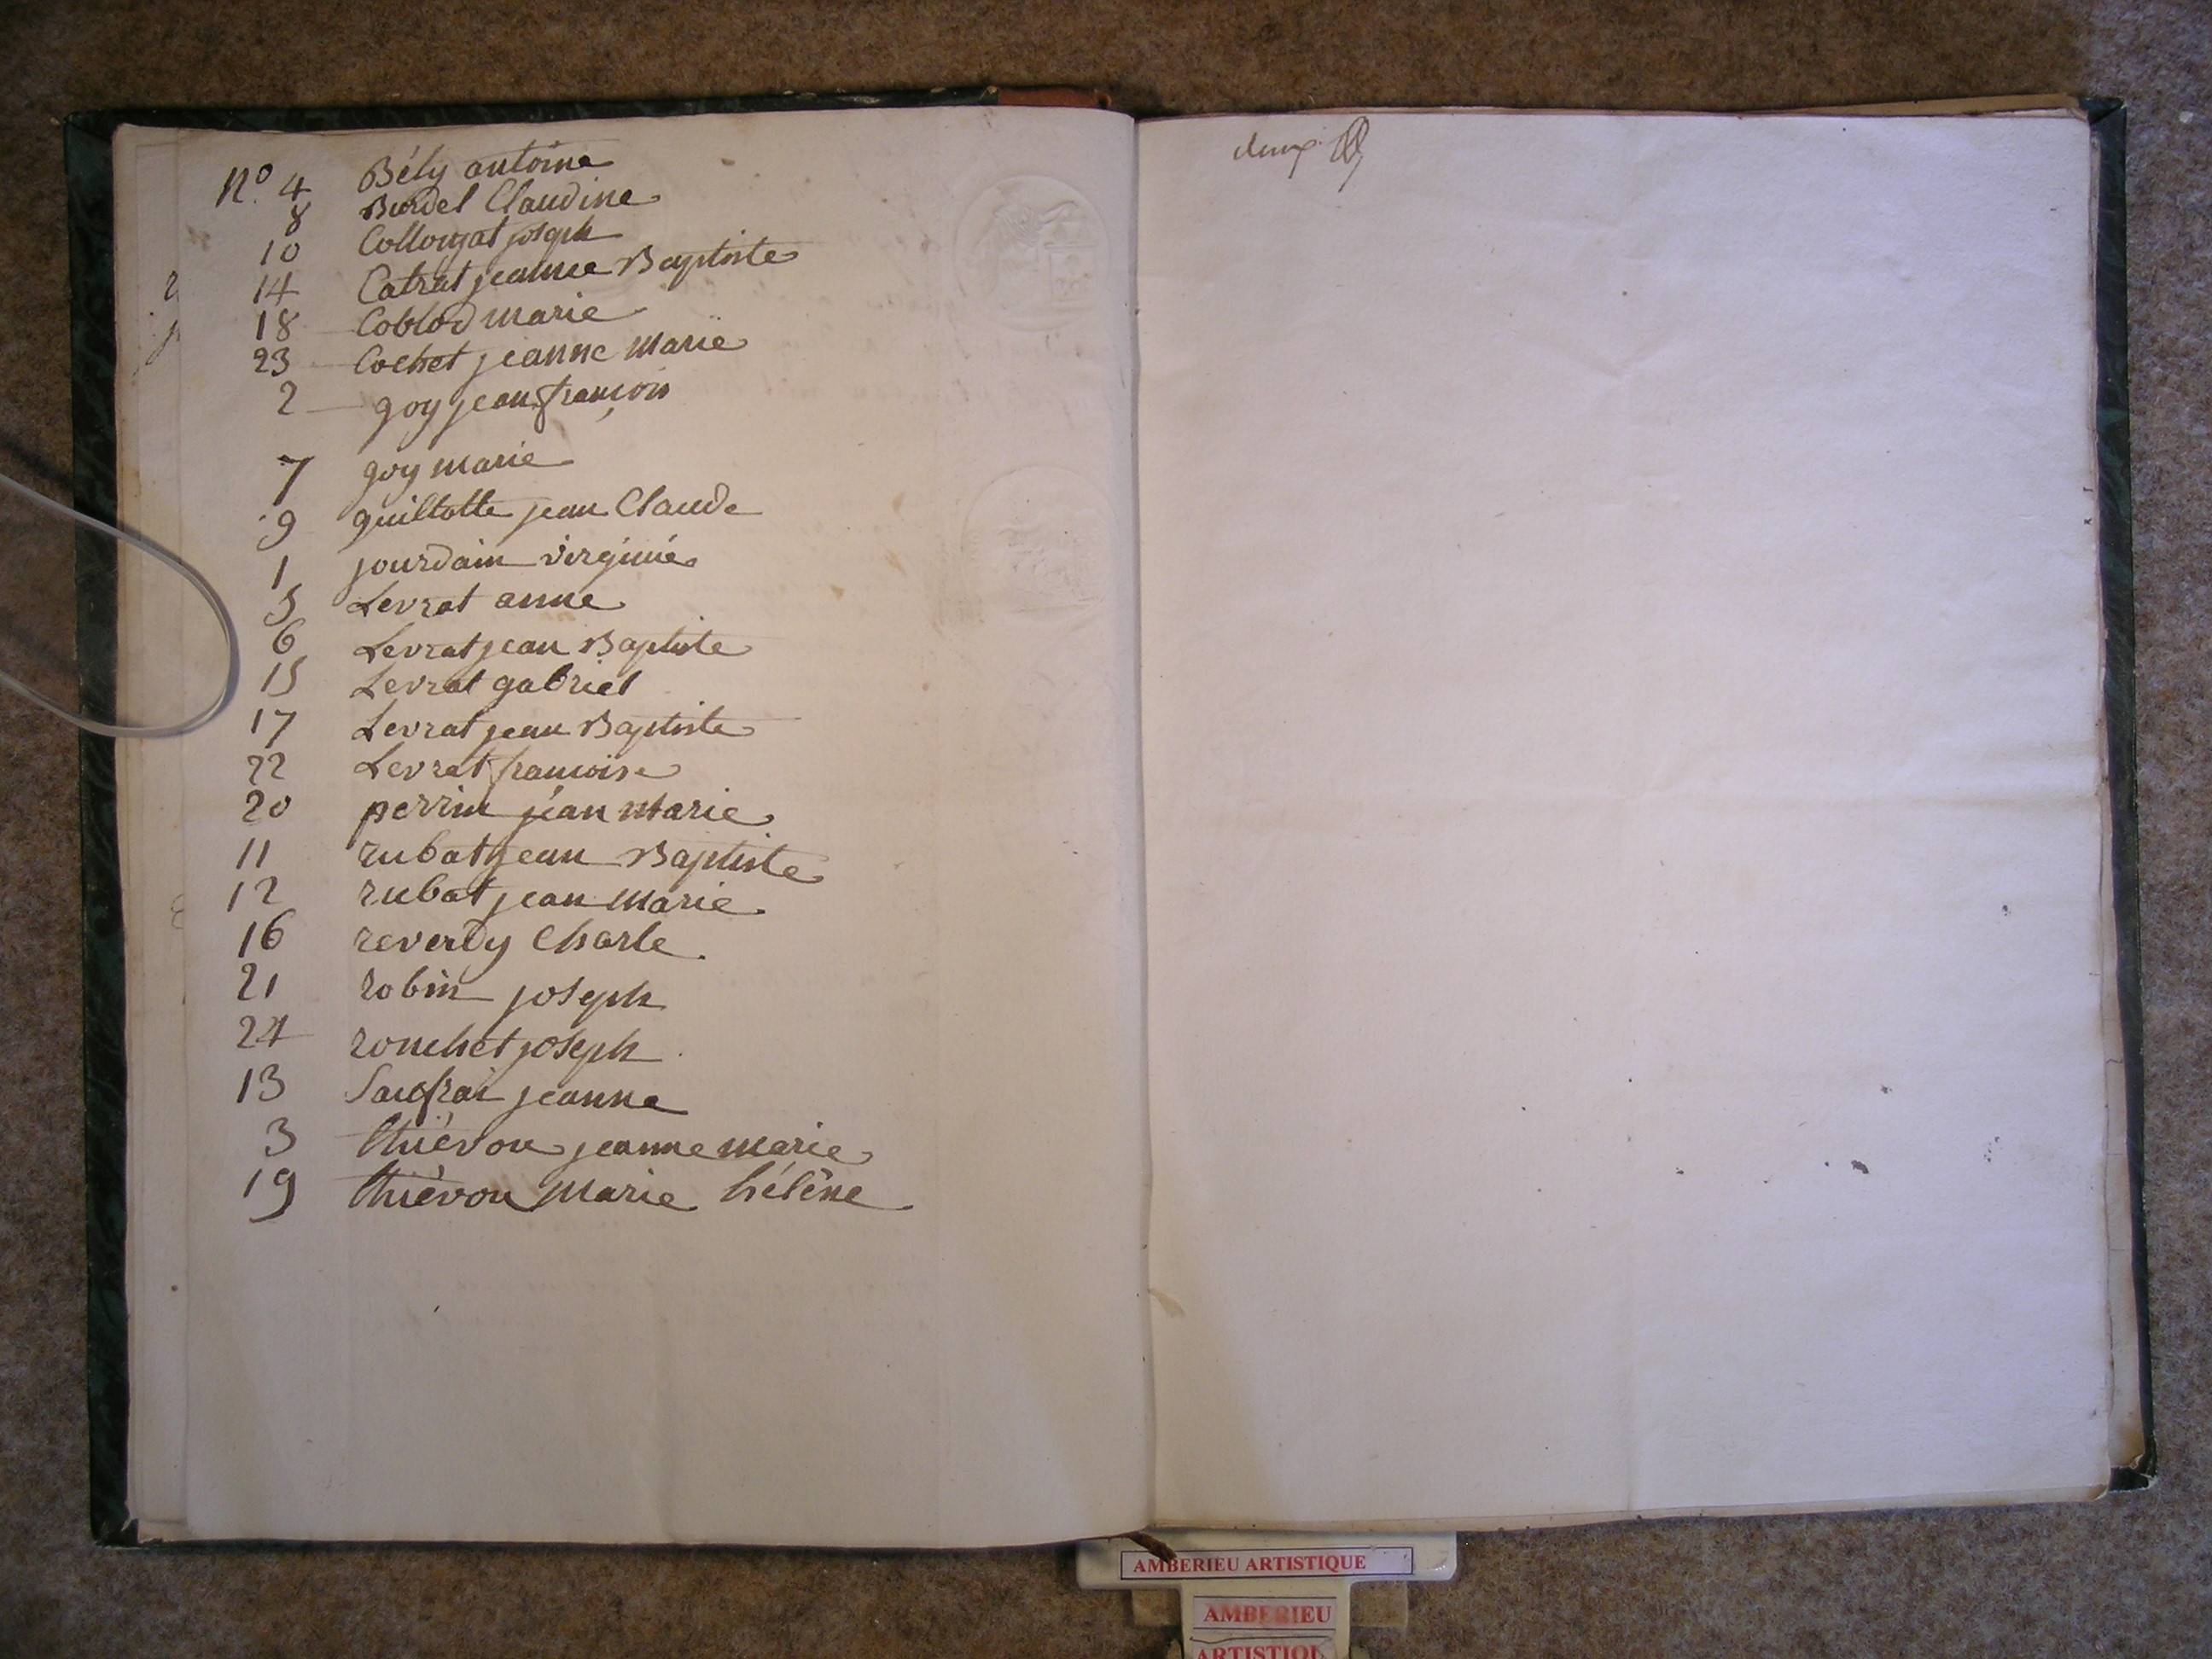 N.º 4 Bély antoine
8 Burdel Claudine
10 Collonzat joseph
14 Catrat jeanne Baptiste
18 Coblod marie
23 Cochet jeanne Marie
2 goy jean françois
7 goy marie
9 guillotte jean Claude
1 jourdain virginie
5 Levrat anne
6 Levrat jean Baptiste
15 Levrat gabriel
17 Levrat jean Baptiste
22 Levrat francoise
20 perrin jean Marie
11 rubat jean Baptiste
12 rubat jean Marie
16 reverdy Charle
21 robin joseph
24 ronchet joseph
13 jeanne
3 thiévon jeanne marie
19 thiévon Marie hélène
deux
AMBERIEU ARTISTIQUE
AMBERIEU